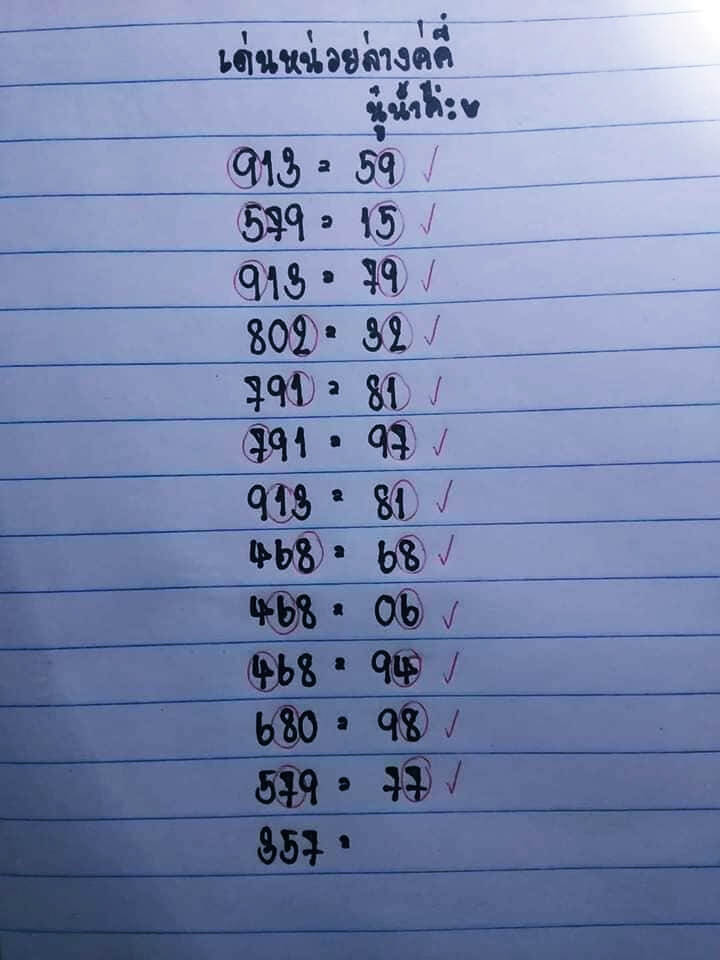 เด่นหน่วยล่างคู่คี่
913 = 59 ✓
579 = 15 ✓
913 = 79 ✓
802 = 32 ✓
791 = 81 ✓
791 = 97 ✓
913 = 81 ✓
468 = 68 ✓
468 = 06 ✓
468 = 94 ✓
680 = 98 ✓
579 = 77 ✓
357 =